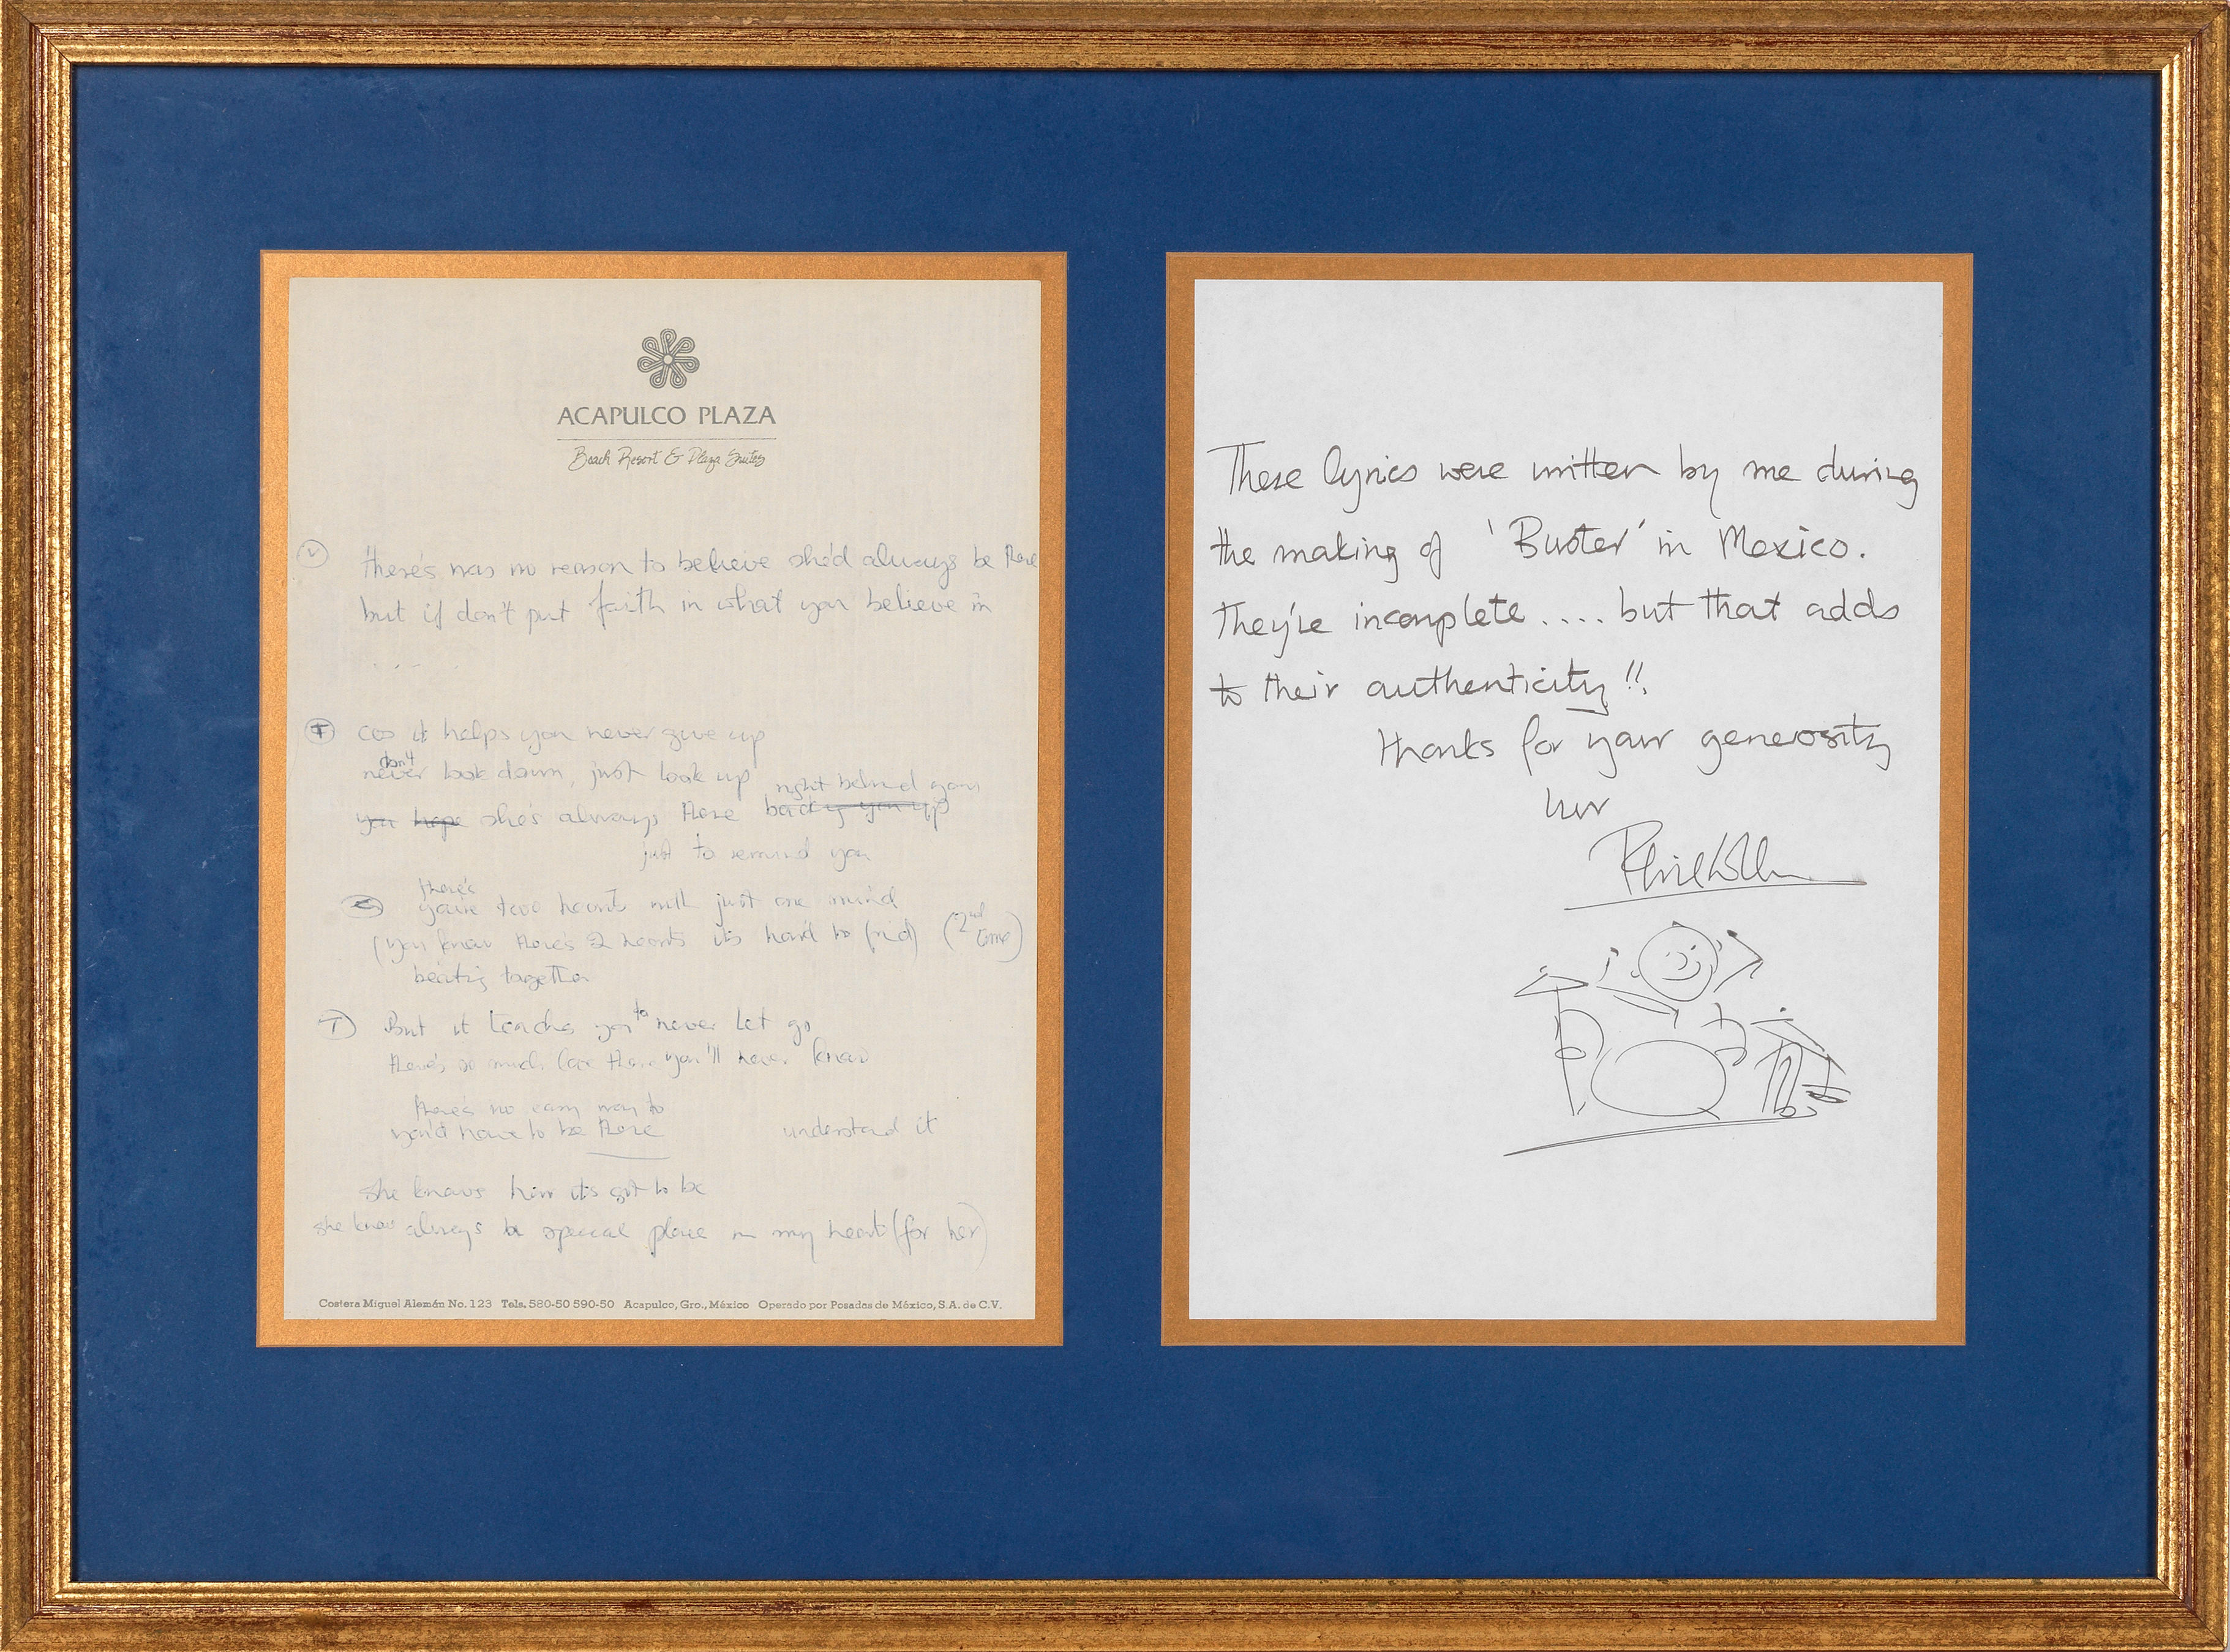 ACAPULCO PLAZA
Beach Resort & Plaza Suites
there's was no reason to believe she'd always be there
but if don't put faith in what you believe in
....
cos it helps you never give up
don't
never look down, just look up
right behind you
you hope she's always there back you up
just to remind you
there's
you're two hearts with just one mind
(you know there's 2 hearts its hard to find) (2nd time)
beating together
But it teaches you to never let go
there's so much love there you'll never know
there's no easy way to
you'd have to be there understand it
she knows how it's got to be
she knows always a special place in my heart (for her)
Costera Miguel Alemán No. 123 Tels. 580-50 590-50 Acapulco, Gro., México Operado por Posadas de México, S.A. de C.V.
These lyrics were written by me during
the making of 'Buster' in Mexico.
They're incomplete .... but that adds
to their authenticity!!
Thanks for your generosity
luv
Phil Collins